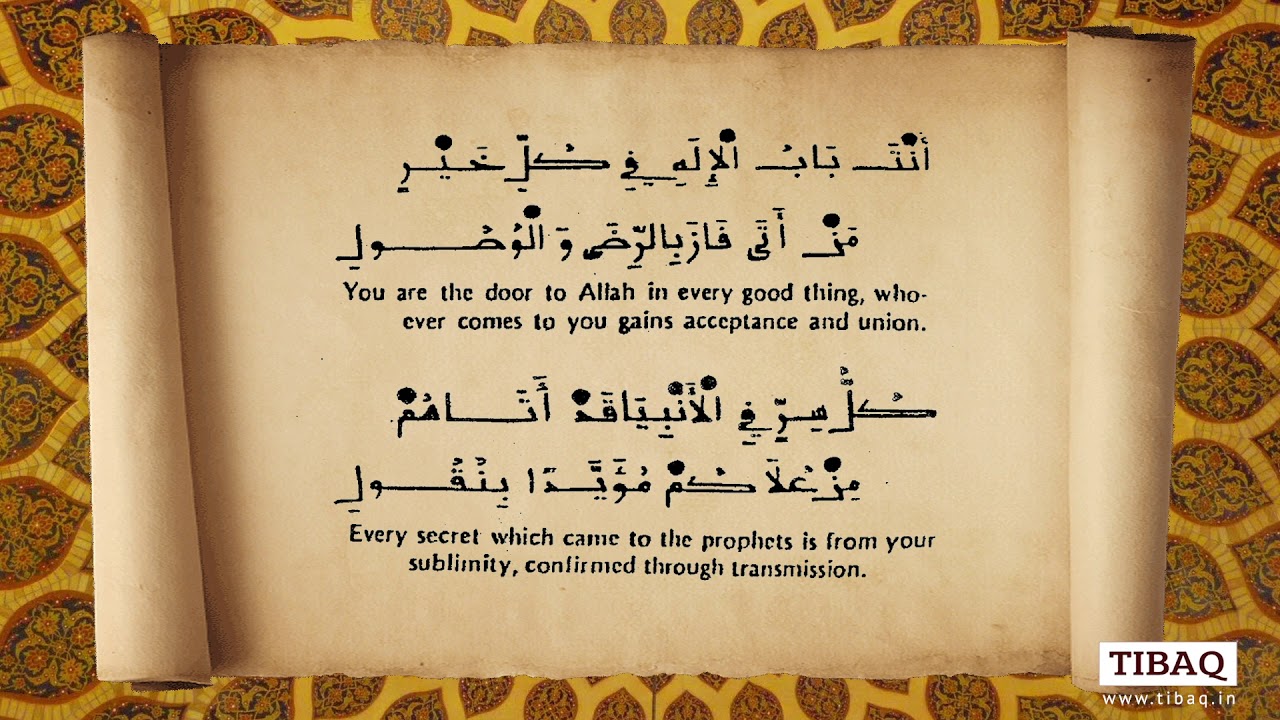 أَنْتَ بَابُ الْإِلَهِ فِي كُلِّ خَيْرٍ
مَنْ أَتَى فَازَ بِالرِّضَى وَ الْوُصُولِ
You are the door to Allah in every good thing, who-
ever comes to you gains acceptance and union.
كُلُّ سِرٍّ فِي الْأَنْبِيَا قَدْ أَتَاهُمْ
مِنْ عُلَاكُمْ مُؤَيَّدًا بِنُقُولِ
Every secret which came to the prophets is from your
sublimity, confirmed through transmission.
TIBAQ
www.tibaq.in